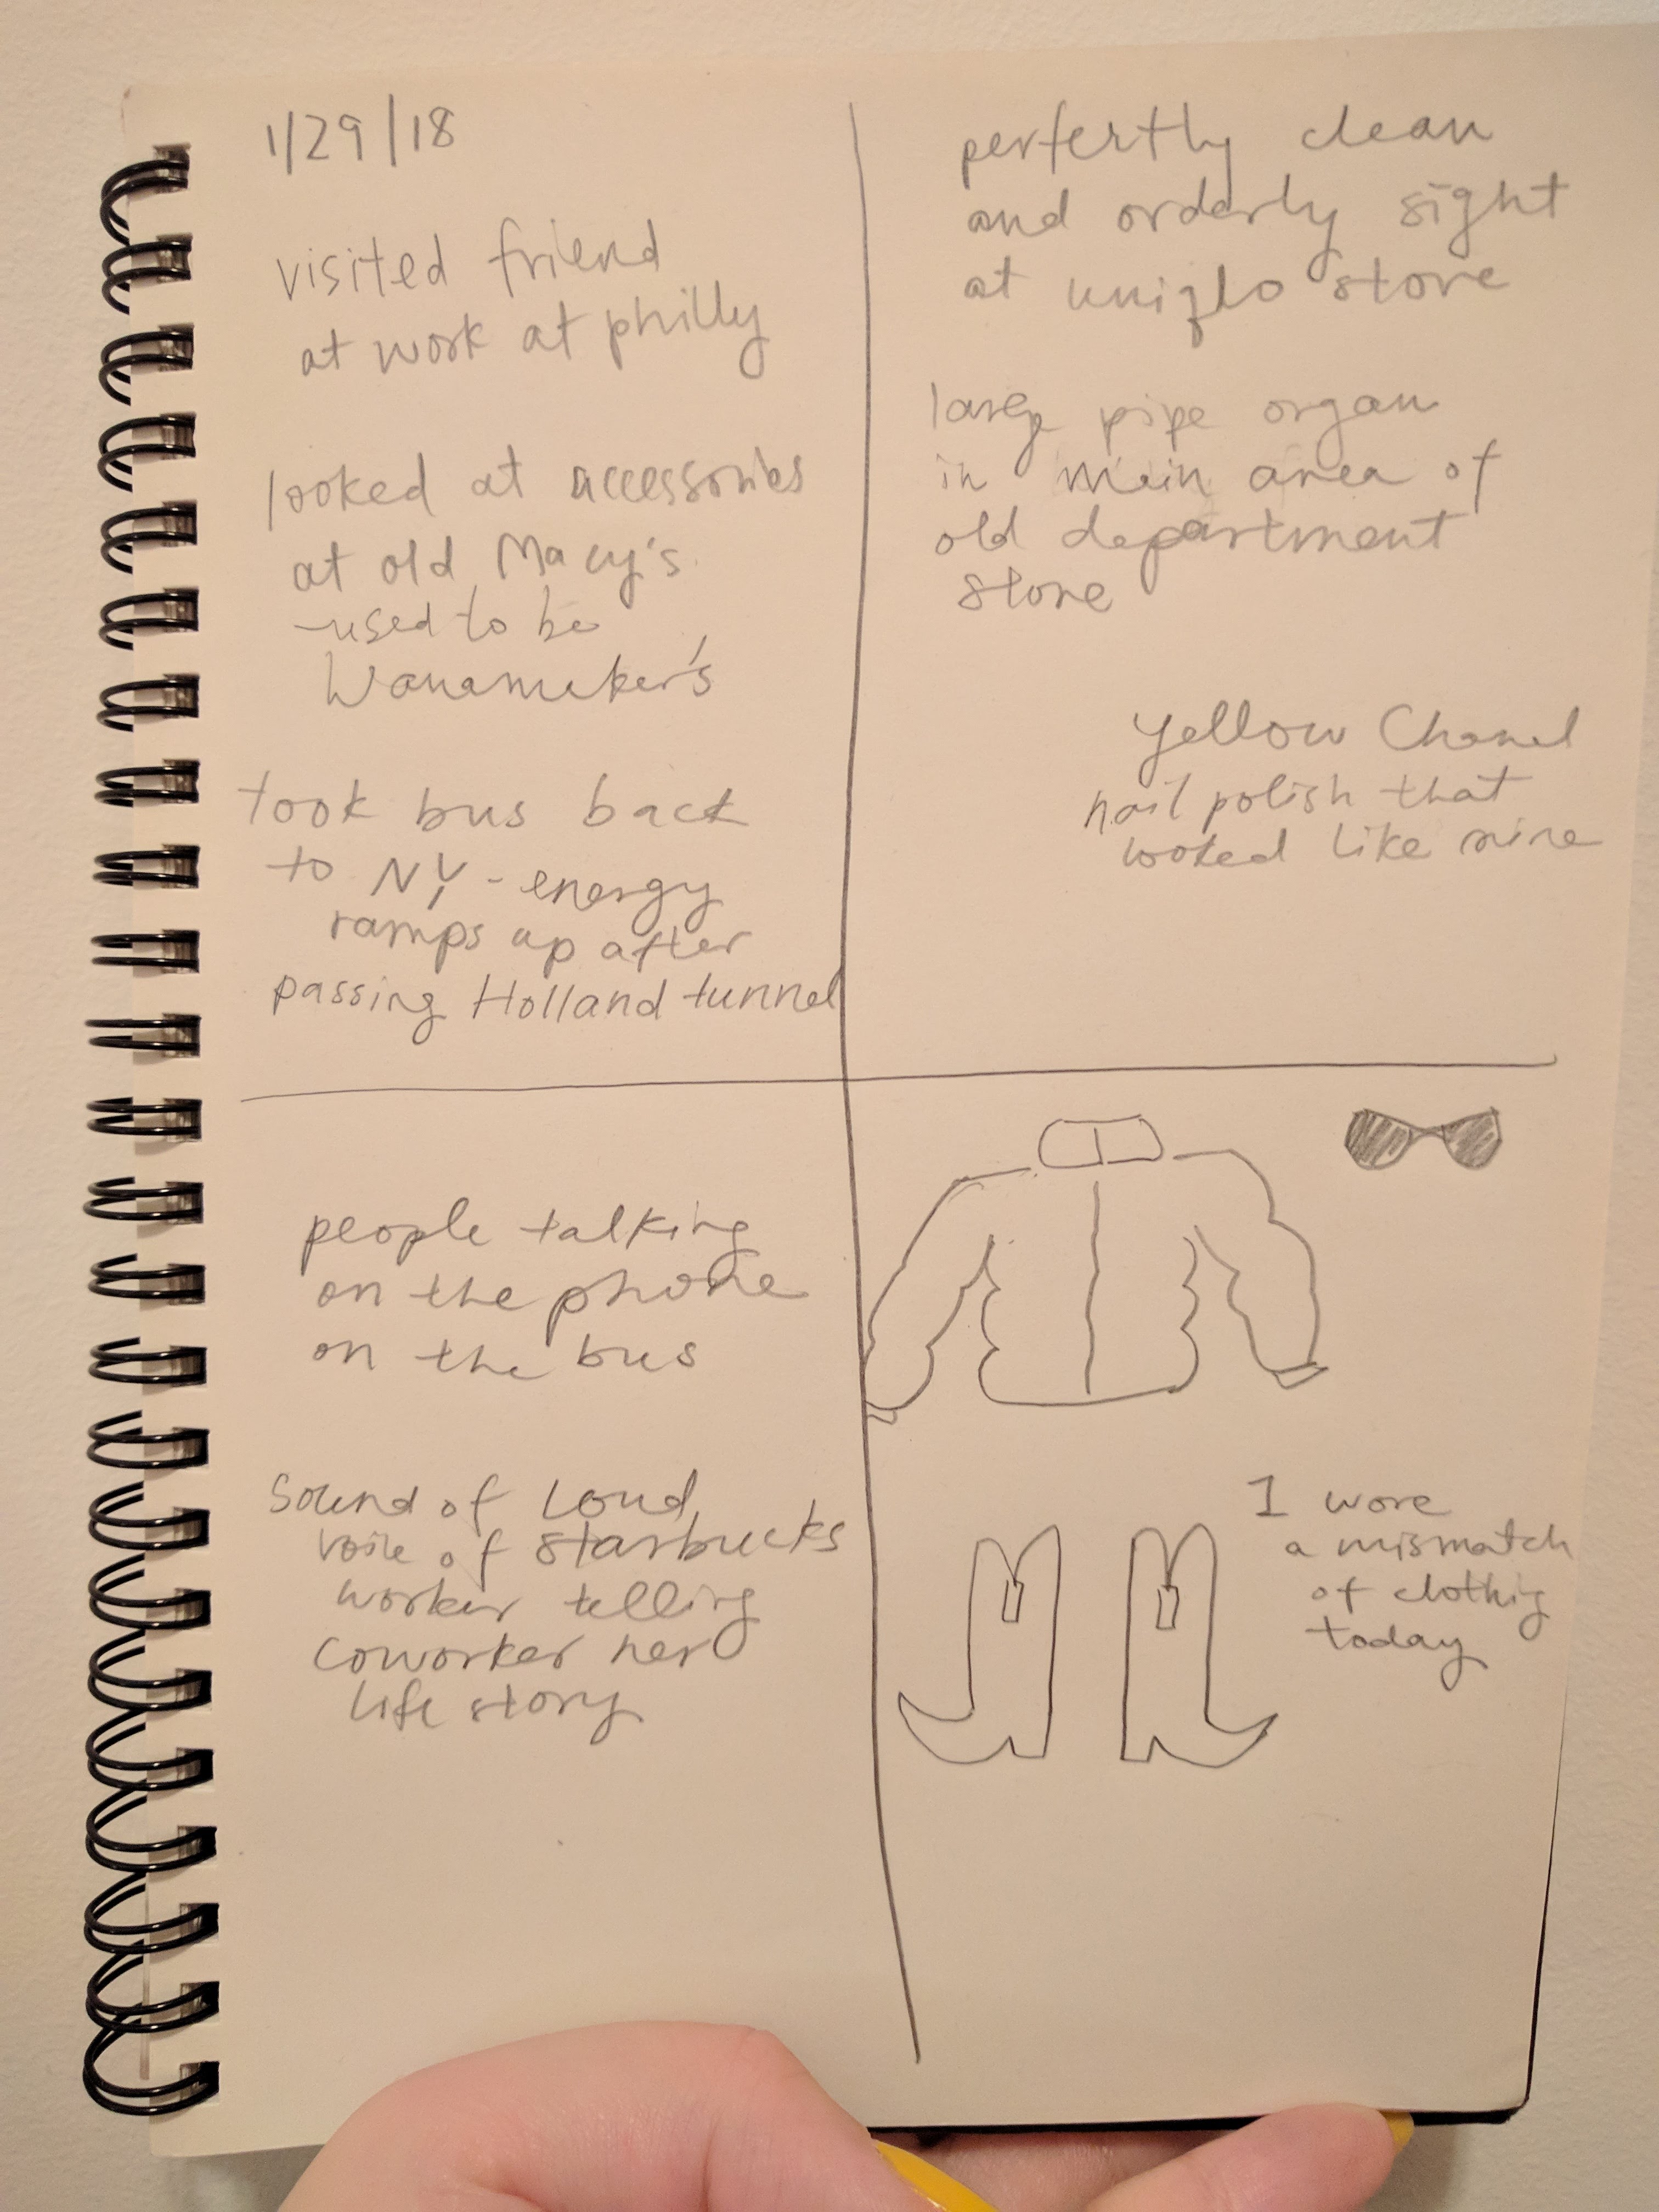 1/29/18
visited friend
at work at philly
looked at accessories
at old Macy's
-used to be
Wanamaker's
took bus back
to NY - energy
ramps up after
passing Holland tunnel
perfectly clean
and orderly sight
at uniqlo store
large pipe organ
in main area of
old department
store
yellow Chanel
nail polish that
looked like mine
people talking
on the phone
on the bus
sound of loud
voice of starbucks
worker telling
coworker her
life story
I wore
a mismatch
of clothing
today